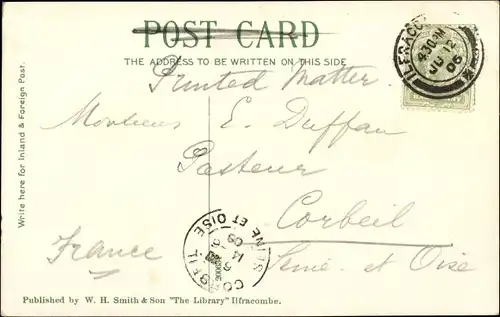 POST CARD
THE ADDRESS TO BE WRITTEN ON THIS SIDE
Printed Matter
Monsieur E. Duffau
Pasteur
Corbeil
Seine et Oise
France
Write here for Inland & Foreign Post.
ILFRACO
4.30PM
JU 12
06
CORBEIL
SEINE ET OISE
Published by W. H. Smith & Son "The Library" Ilfracombe.